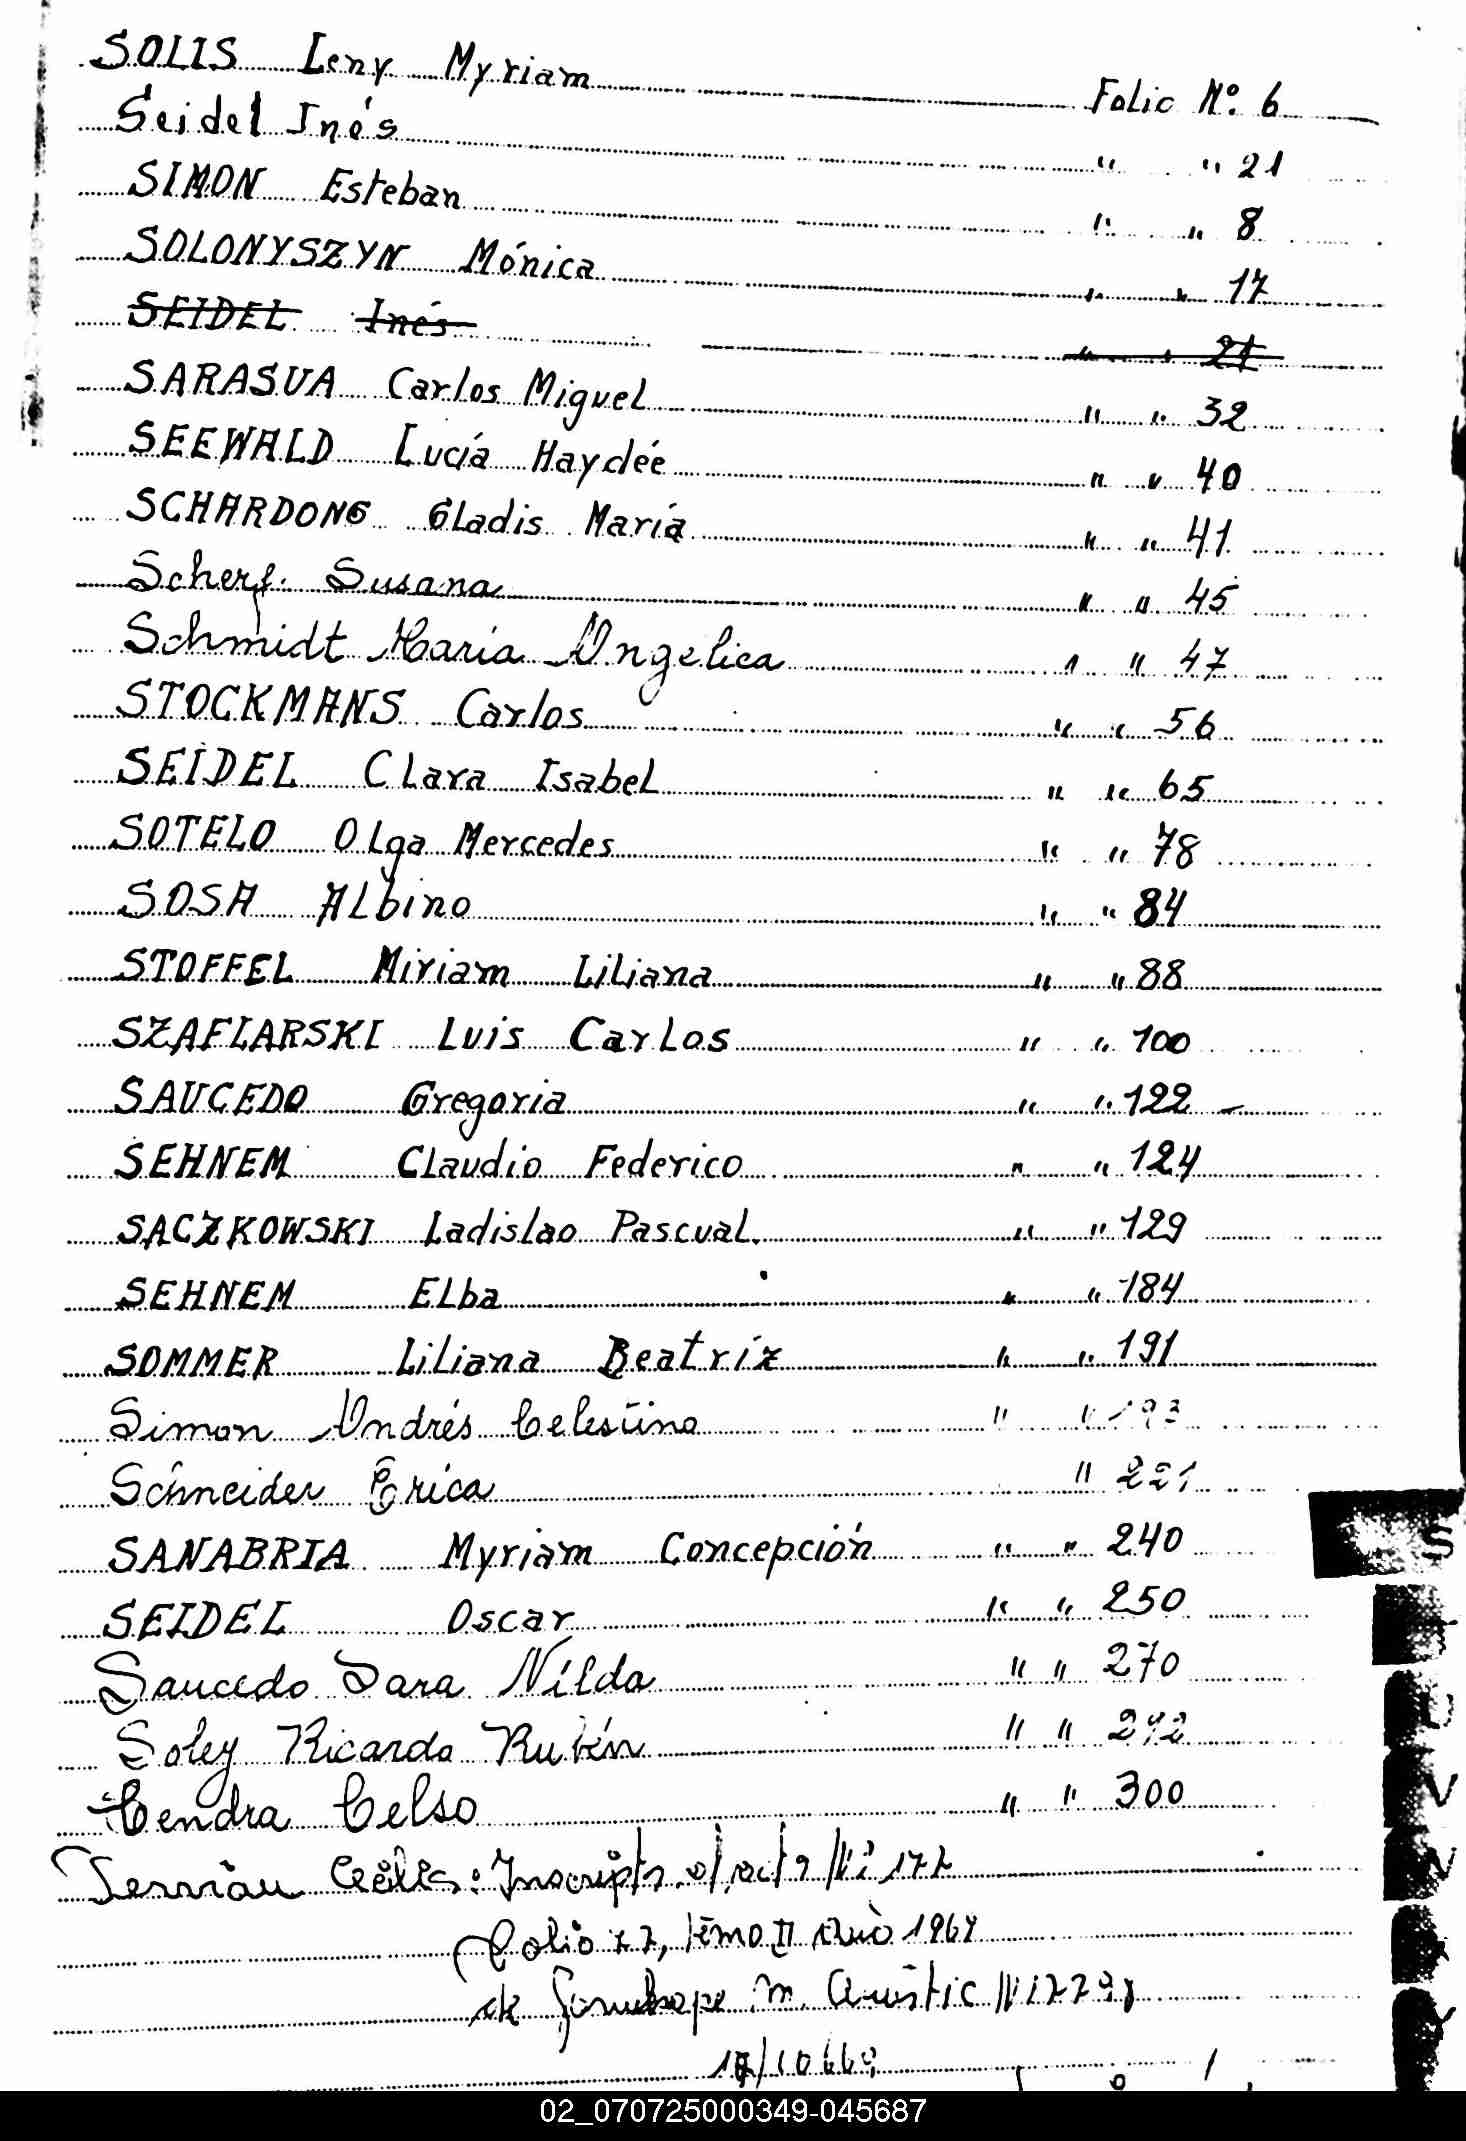 SOLIS Leny Myriam Folio Nº. 6
Seidel Inés " " 21
SIMON Esteban " " 8
SOLONYSZYN Mónica " " 17
SEIDEL Inés " " 21
SARASUA Carlos Miguel " " 32
SEEWALD Lucía Haydée " " 40
SCHARDONG Gladis María " " 41
Scherf Susana " " 45
Schmidt Maria Angelica " " 47
STOCKMANS Carlos " " 56
SEIDEL Clara Isabel " " 65
SOTELO Olga Mercedes " " 78
SOSA Albino " " 84
STOFFEL Miriam Liliana " " 88
SZAFLARSKI Luis Carlos " " 100
SAUCEDO Gregoria " " 122
SEHNEM Claudio Federico " " 124
SACZKOWSKI Ladislao Pascual. " " 129
SEHNEM Elba " " 184
SOMMER Liliana Beatríz " " 191
Simon Andrés Celestino " " 193
Schneider Erica " 221
SANABRIA Myriam Concepción " " 240
SEIDEL Oscar " " 250
Saucedo Sara Nilda " " 270
Soley Ricardo Rubén " " 292
Cendra Celso " " 300
177
Folio 77, Tomo II Año 1967
S
U
V
Y
02_070725000349-045687